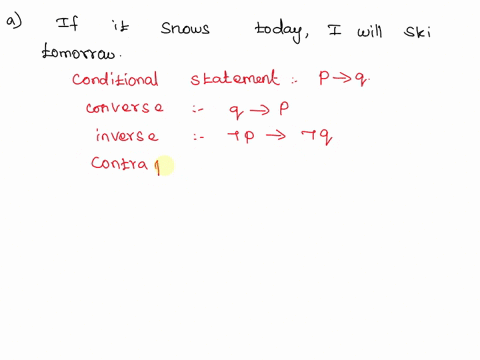 a) If it snows today, I will ski
tomorrow.
Conditional statement :- P → q.
converse :- q → P
inverse :- ¬p → ¬q
Contrap